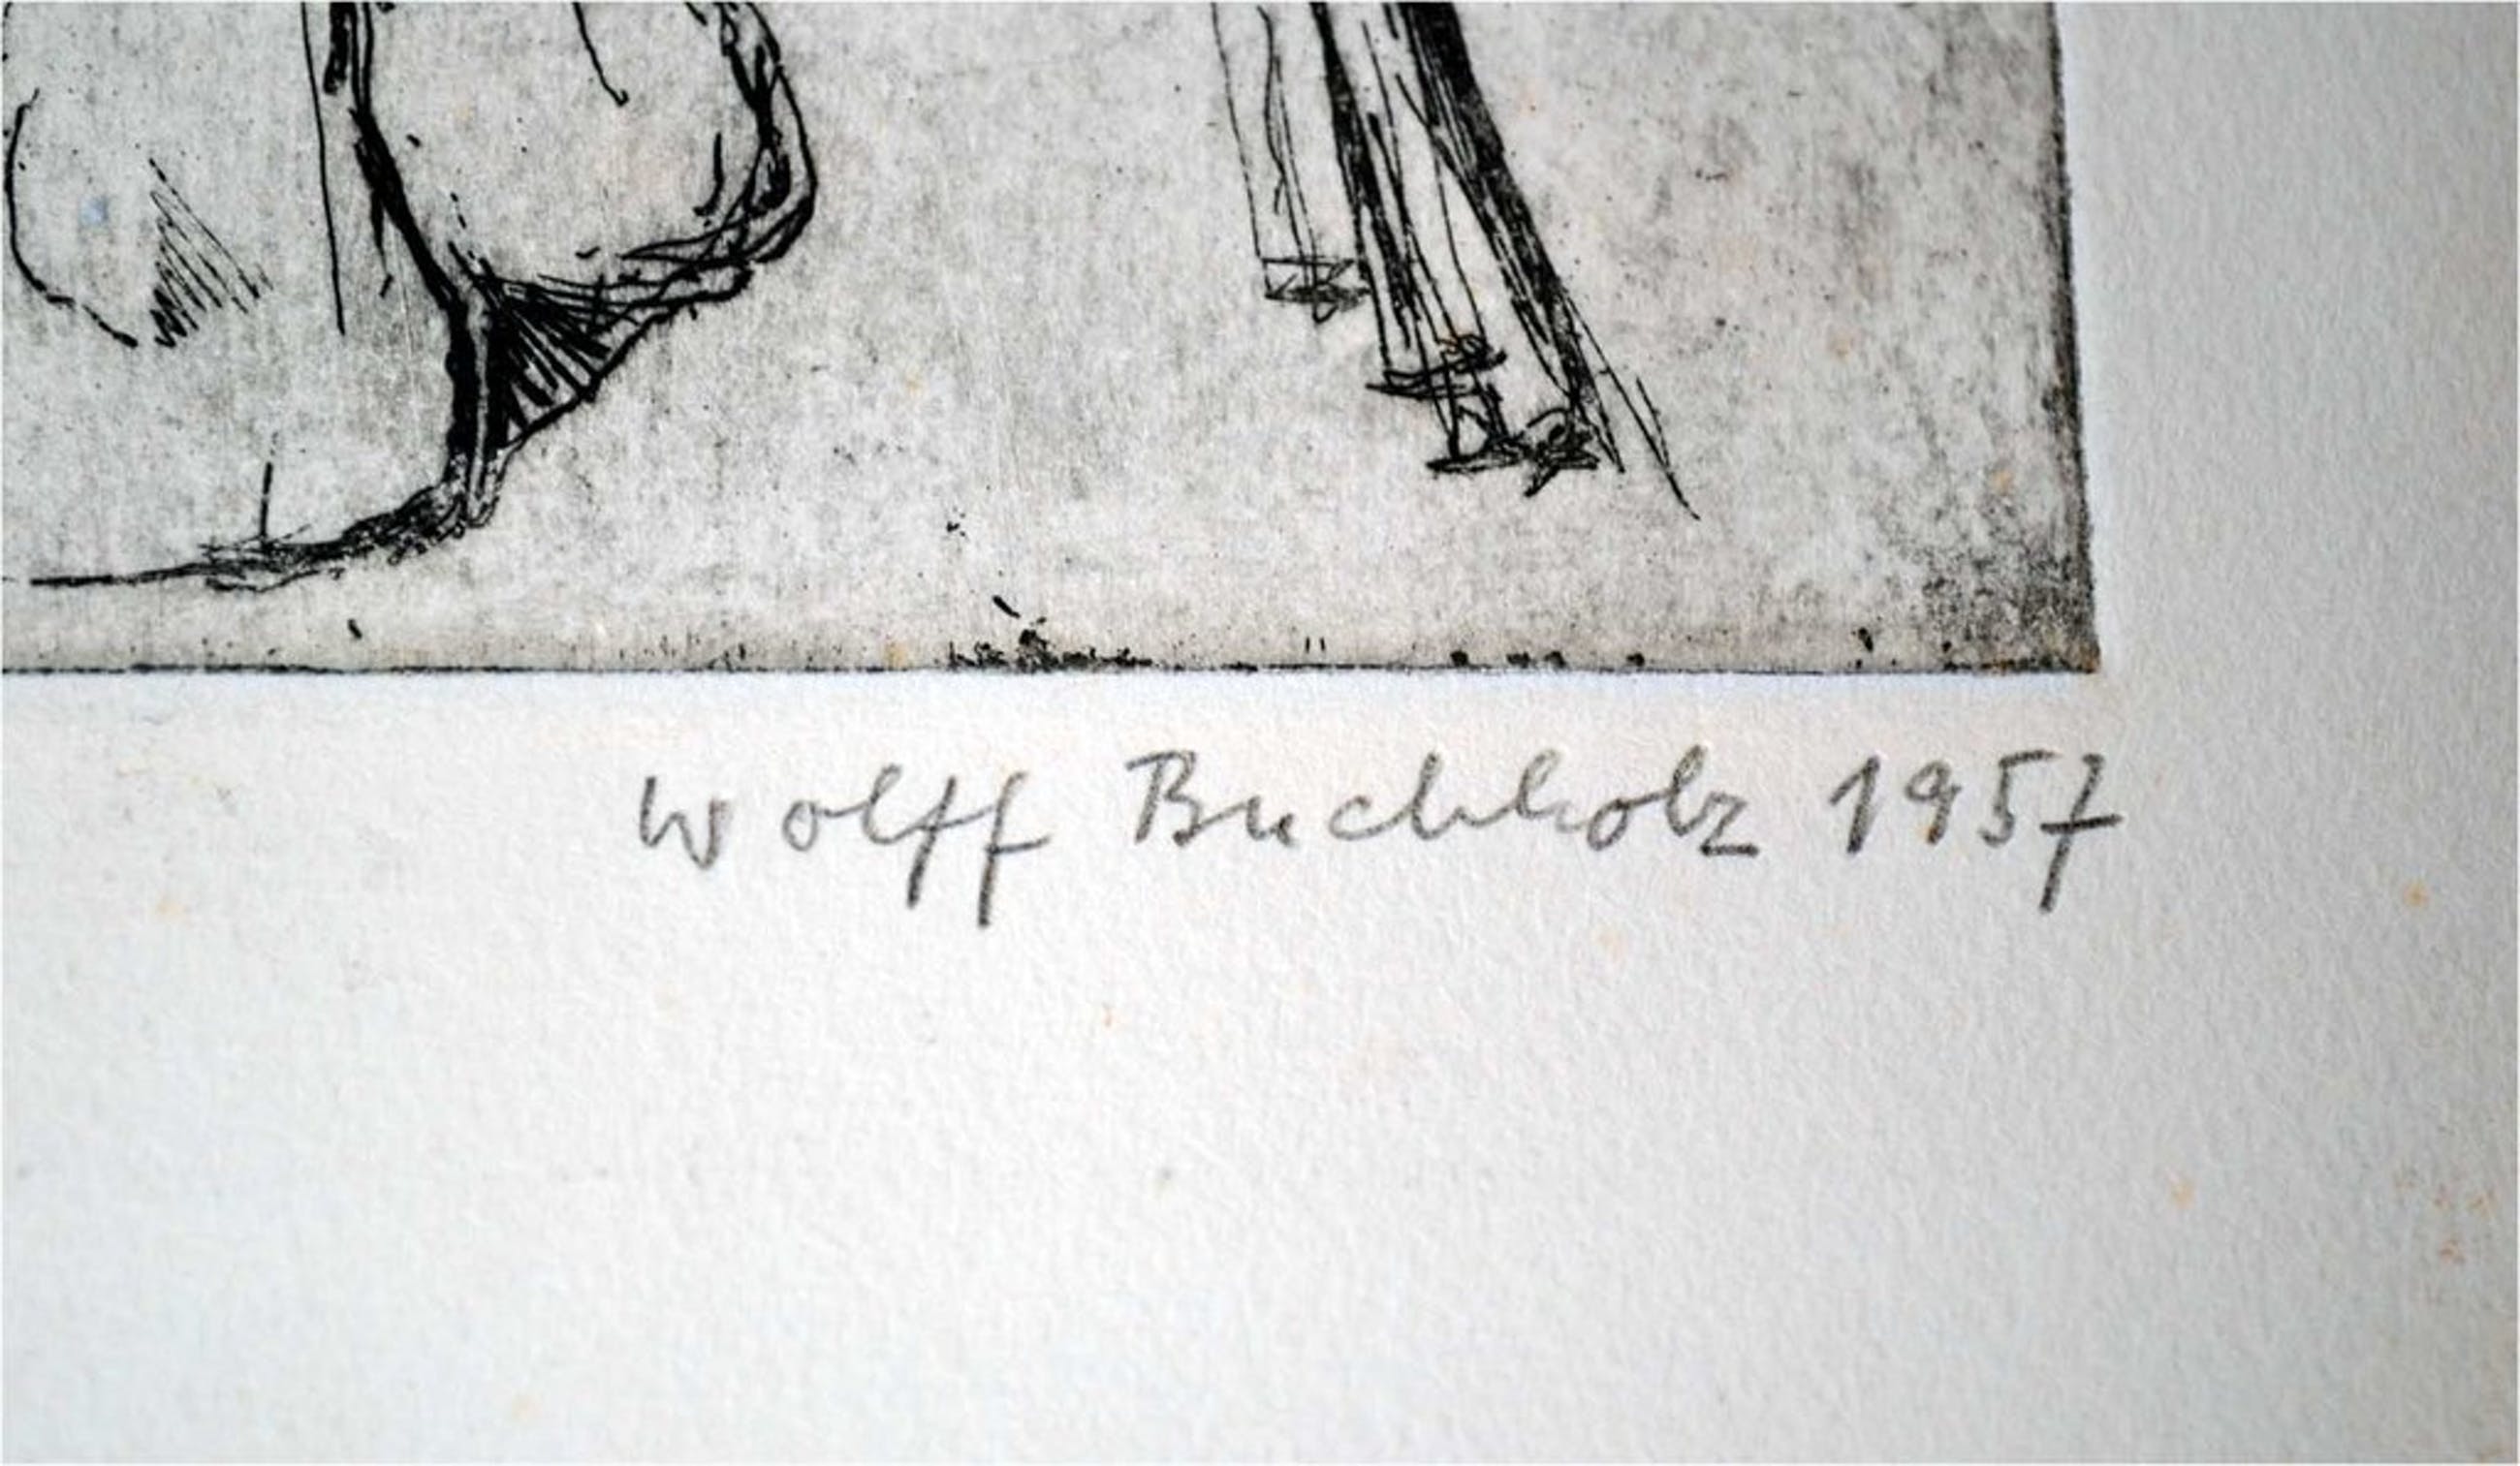 Wolff Buchholz 1957